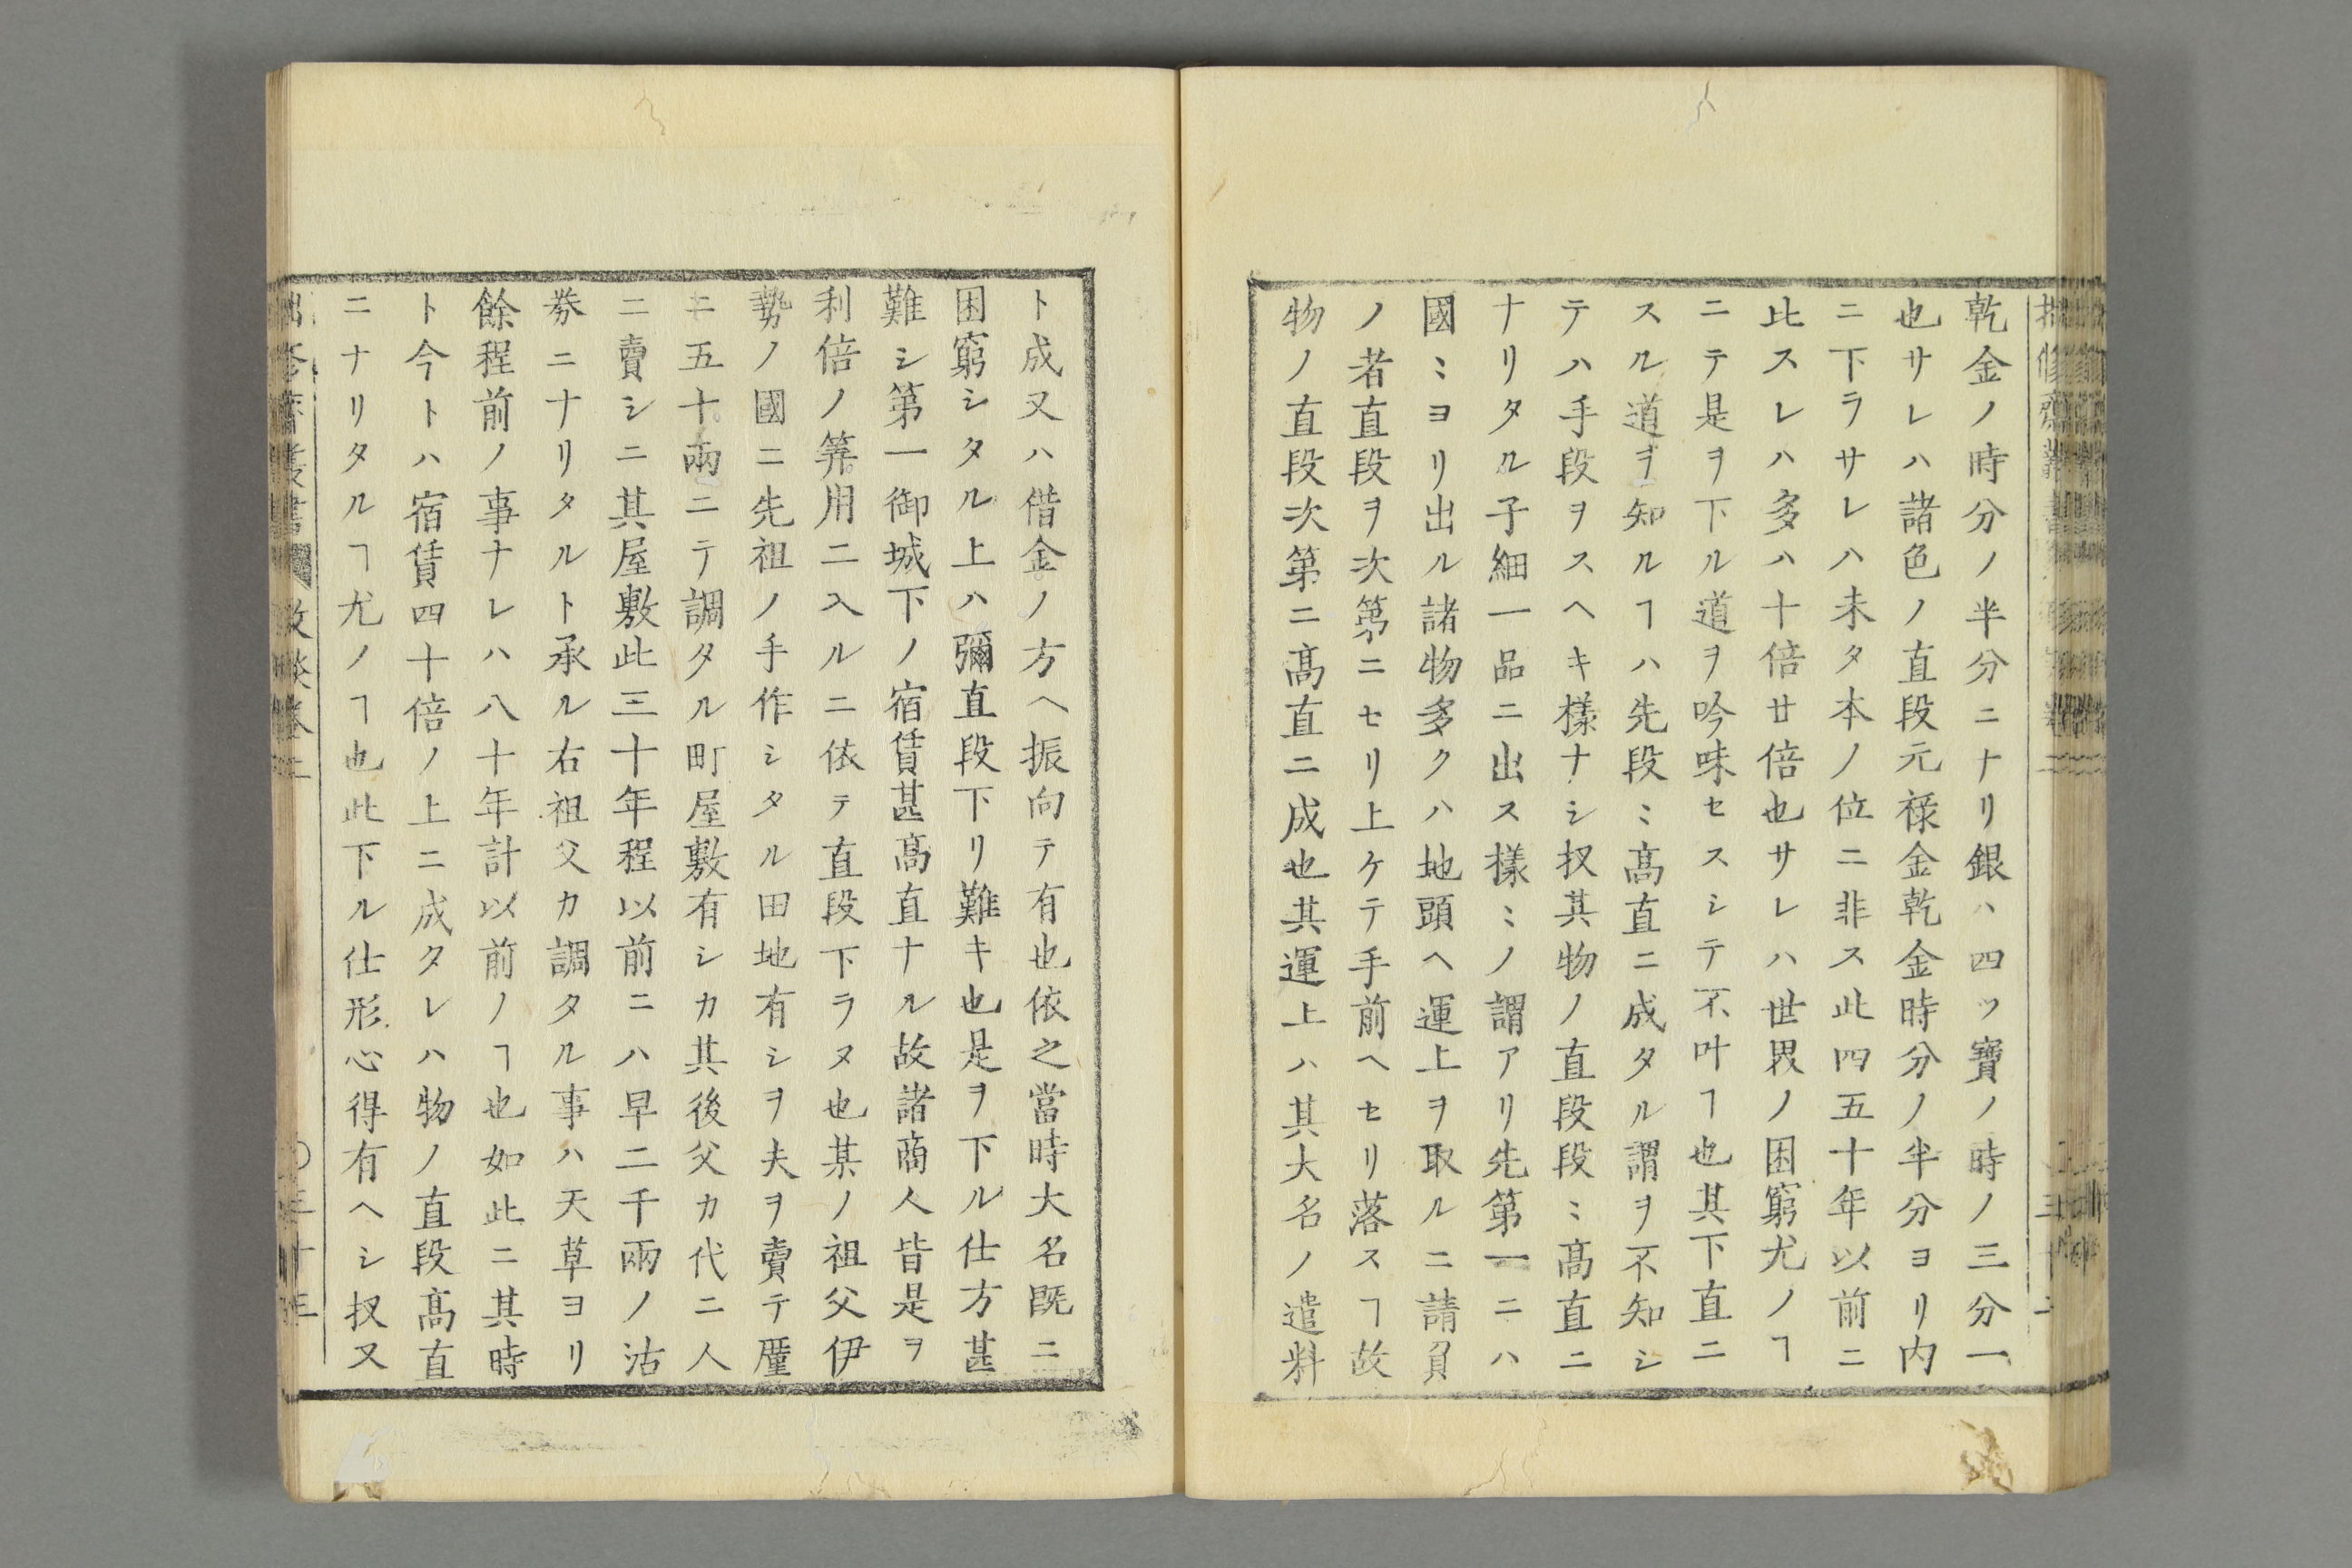 乾金ノ時分ノ半分ニナリ銀ハ四ツ寶ノ時ノ三分一
也サレハ諸色ノ直段元禄金乾金時分ノ半分ヨリ内
ニ下ラサレハ未タ本ノ位ニ非ス此四五十年以前ニ
此スレハ多ハ十倍廿倍也サレハ世界ノ困窮尤ノヿ
ニテ是ヲ下ル道ヲ吟味セスシテ不叶ヿ也其下直ニ
スル道ヲ知ルヿハ先段ミ高直ニ成タル謂ヲ不知シ
テハ手段ヲスヘキ樣ナシ扠其物ノ直段段ミ高直ニ
ナリタル子細一品ニ出ス樣ミノ謂アリ先第一ニハ
國ミヨリ出ル諸物多クハ地頭ヘ運上ヲ取ルニ請負
ノ者直段ヲ次第ニセリ上ケテ手前ヘセリ落スヿ故
物ノ直段次第ニ高直ニ成也其運上ハ其大名ノ遣料
ト成又ハ借金ノ方ヘ振向テ有也依之當時大名既ニ
困窮シタル上ハ彌直段下リ難キ也是ヲ下ル仕方甚
難シ第一御城下ノ宿賃甚高直ナル故諸商人皆是ヲ
利倍ノ筭用ニ入ルニ依テ直段下ラヌ也某ノ祖父伊
勢ノ國ニ先祖ノ手作シタル田地有シヲ夫ヲ賣テ厘
ニ五十兩ニテ調タル町屋敷有シカ其後父カ代ニ人
ニ賣シニ其屋敷此三十年程以前ニハ早二千兩ノ沽
券ニナリタルト承ル右祖父カ調タル事ハ天草ヨリ
餘程前ノ事ナレハ八十年計以前ノヿ也如此ニ其時
ト今トハ宿賃四十倍ノ上ニ成タレハ物ノ直段高直
ニナリタルヿ尤ノヿ也此下ル仕形心得有ヘシ扠又